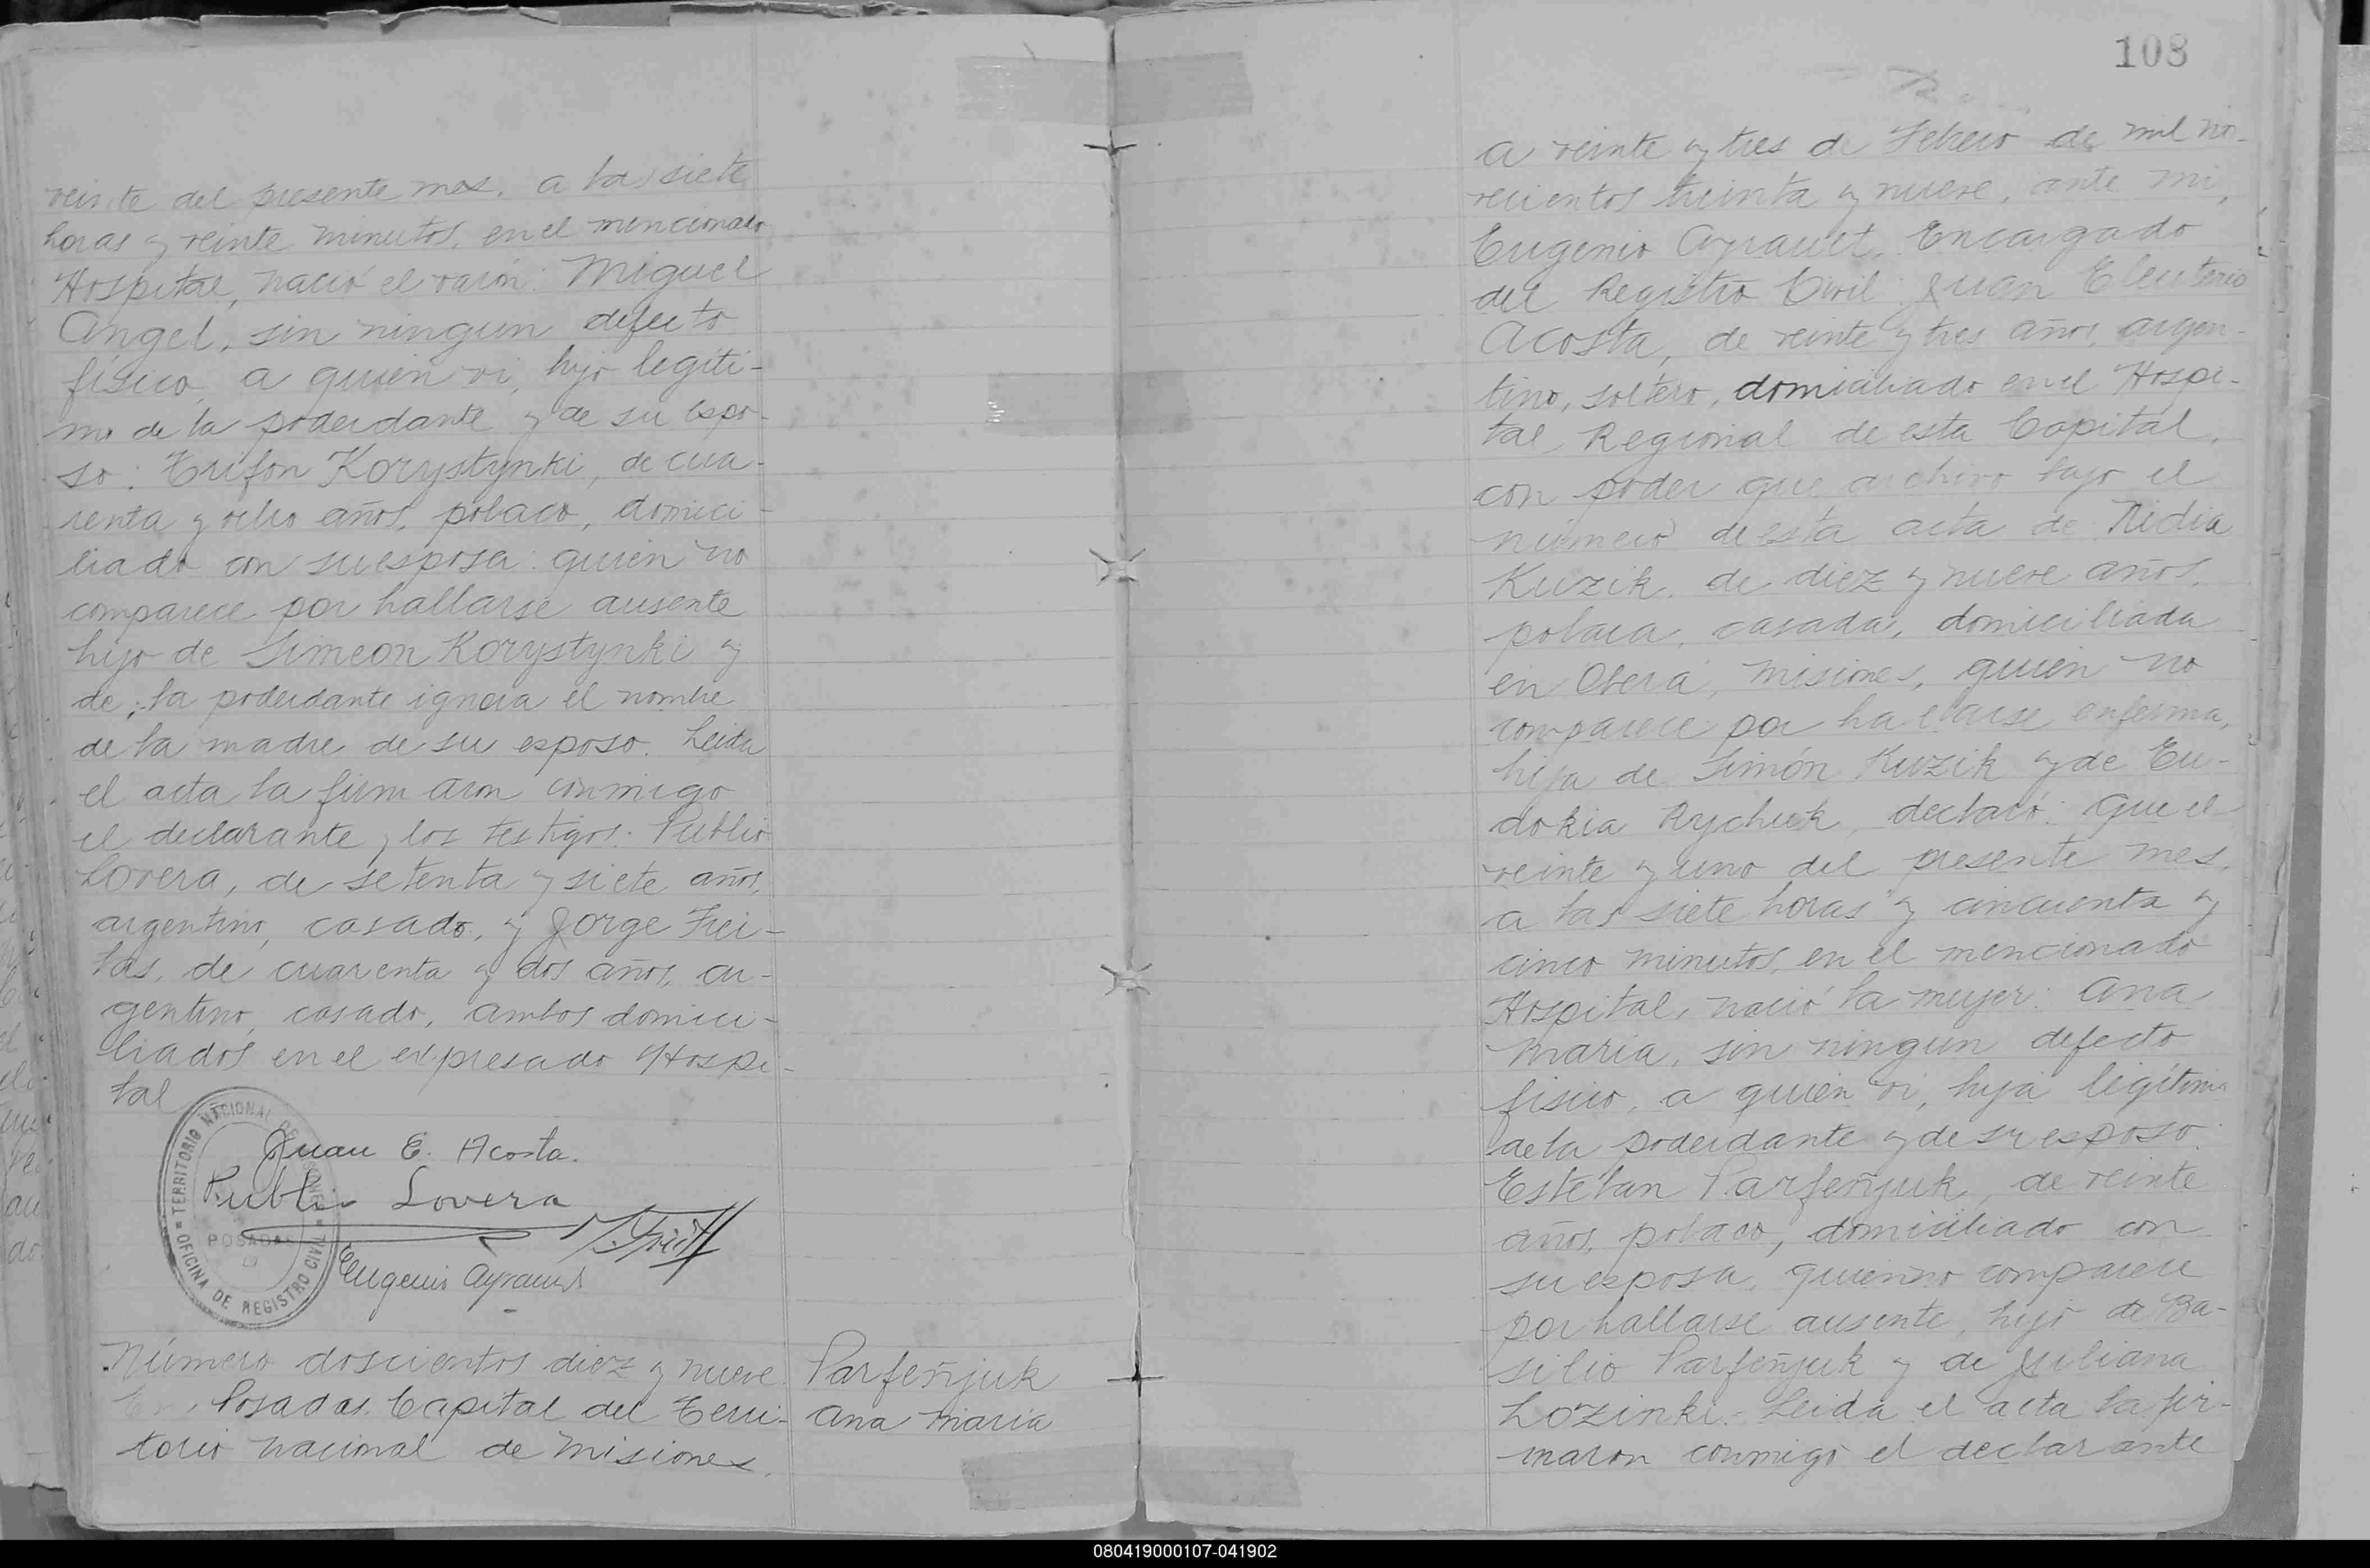 veinte del presente mes, a las siete
horas y veinte minutos, en el mencionado
Hospital, nació el varón: Miguel
Angel, sin ningun defecto
físico, a quien vi, hijo legíti-
mo de la poderdante y de su espo-
so: Trifon Korystynki, de cua-
renta y ocho años, polaco, domici-
liado con su esposa: quien no
comparece por hallarse ausente
hijo de Simeon Korystynki y
de; la poderdante ignora el nombre
de la madre de su esposo. Leida
el acta la firmaron conmigo
el declarante y los testigos: Publio
Lovera, de setenta y siete años,
argentino, casado, y Jorge Frei-
tas, de cuarenta y dos años, ar-
gentino, casado, ambos domici-
liados en el expresado Hospi-
tal
TERRITORIO NACIONAL DE MISIONES
OFICINA DE REGISTRO CIVIL
POSADAS
Juan E. Acosta.
Publio Lovera
Eugenio Ayrault
Número doscientos diez y nueve
En Posadas, Capital del Terri-
torio Nacional de Misiones,
Parfeñjuk
Ana Maria
108
a veinte y tres de Febrero de mil no-
vecientos treinta y nueve, ante mi,
Eugenio Ayrault, Encargado
del Registro Civil: Juan Eleuterio
Acosta, de veinte y tres años, argen-
tino, soltero, domiciliado en el Hospi-
tal Regional de esta Capital,
con poder que archivo bajo el
número de esta acta de Nidia
Kuzik, de diez y nueve años,
polaca, casada, domiciliada
en Oberá, Misiones, quien no
comparece por hallarse enferma,
hija de Simón Kuzik y de Eu-
dokia Rychuk, declaró: Que el
veinte y uno del presente mes,
a las siete horas y cincuenta y
cinco minutos, en el mencionado
Hospital, nació la mujer: Ana
Maria, sin ningun defecto
físico, a quien vi, hija legítima
de la poderdante y de su esposo:
Esteban Parfeñjuk, de veinte
años, polaco, domiciliado con
su esposa, quien no comparece
por hallarse ausente, hijo de Ba-
silio Parfeñjuk y de Juliana
Lozinki.- Leida el acta la fir-
maron conmigo el declarante
080419000107-041902